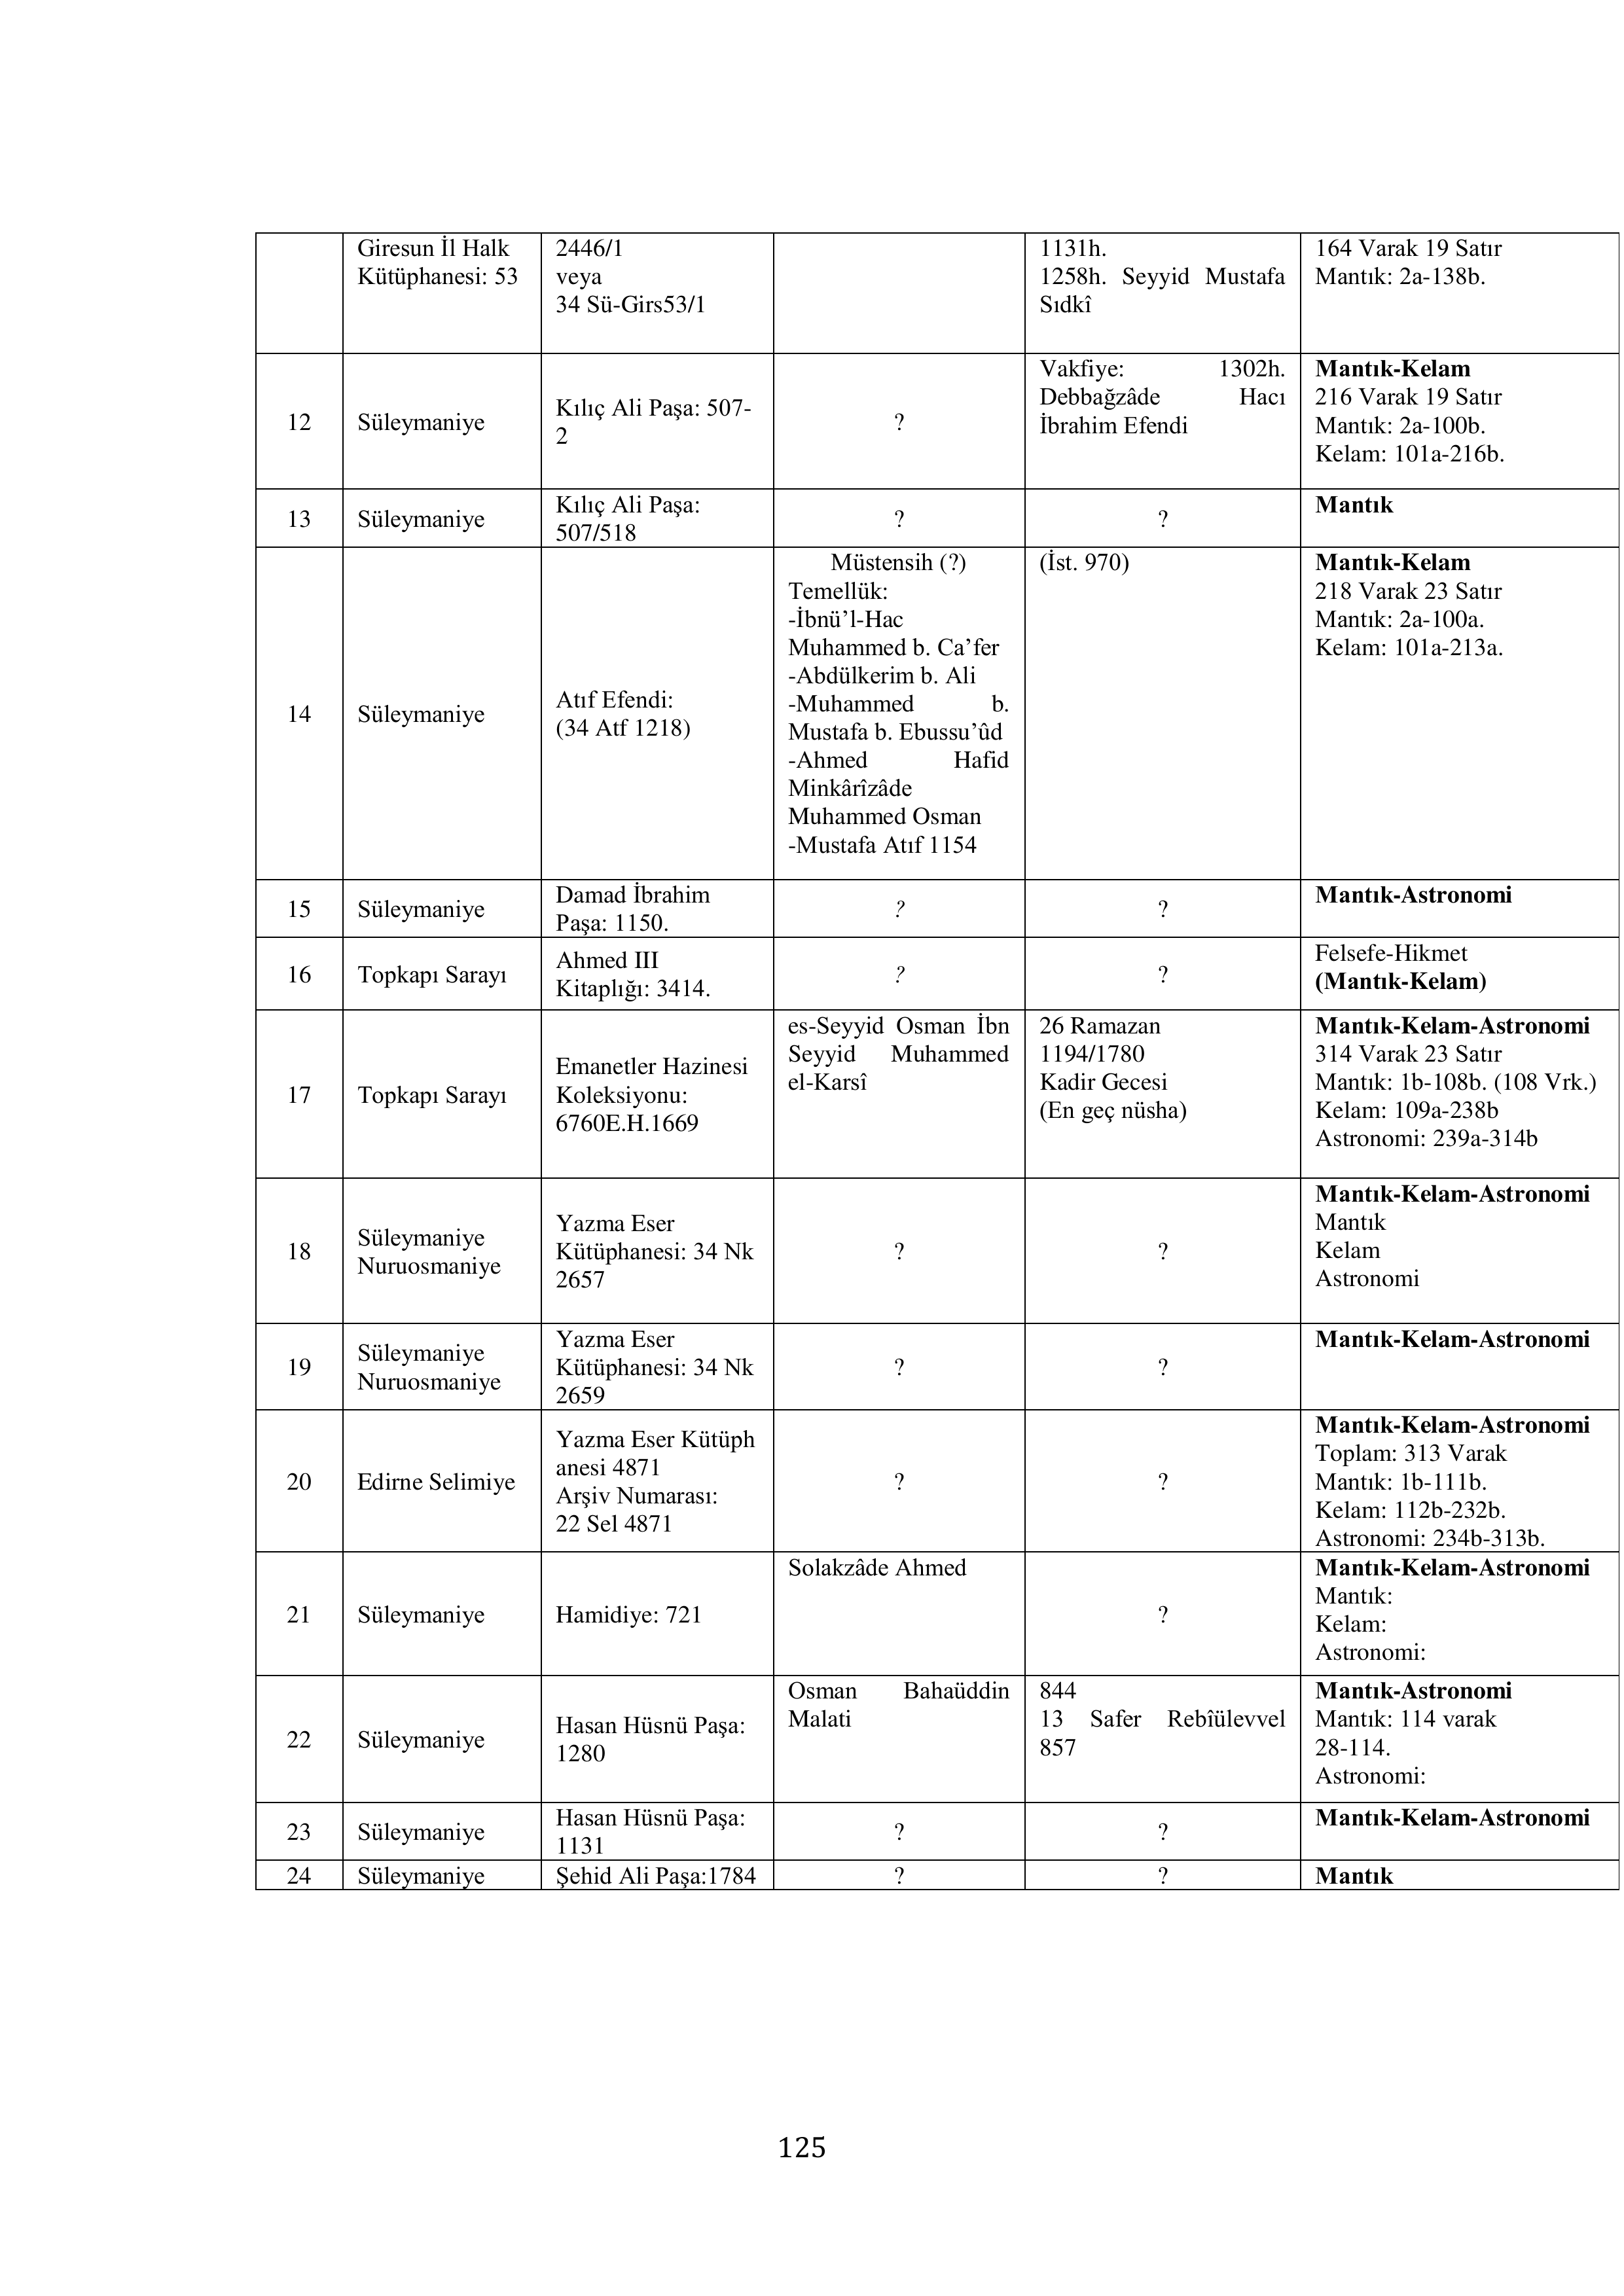 Giresun İl Halk
Kütüphanesi: 53
2446/1
veya
34 Sü-Girs53/1
1131h.
1258h. Seyyid Mustafa
Sıdkî
164 Varak 19 Satır
Mantık: 2a-138b.
12
Süleymaniye
Kılıç Ali Paşa: 507-
2
?
Vakfiye: 1302h.
Debbağzâde Hacı
İbrahim Efendi
Mantık-Kelam
216 Varak 19 Satır
Mantık: 2a-100b.
Kelam: 101a-216b.
13
Süleymaniye
Kılıç Ali Paşa:
507/518
?
?
Mantık
14
Süleymaniye
Atıf Efendi:
(34 Atf 1218)
Müstensih (?)
Temellük:
-İbnü’l-Hac
Muhammed b. Ca’fer
-Abdülkerim b. Ali
-Muhammed b.
Mustafa b. Ebussu’ûd
-Ahmed Hafid
Minkârîzâde
Muhammed Osman
-Mustafa Atıf 1154
(İst. 970)
Mantık-Kelam
218 Varak 23 Satır
Mantık: 2a-100a.
Kelam: 101a-213a.
15
Süleymaniye
Damad İbrahim
Paşa: 1150.
?
?
Mantık-Astronomi
16
Topkapı Sarayı
Ahmed III
Kitaplığı: 3414.
?
?
Felsefe-Hikmet
(Mantık-Kelam)
17
Topkapı Sarayı
Emanetler Hazinesi
Koleksiyonu:
6760E.H.1669
es-Seyyid Osman İbn
Seyyid Muhammed
el-Karsî
26 Ramazan
1194/1780
Kadir Gecesi
(En geç nüsha)
Mantık-Kelam-Astronomi
314 Varak 23 Satır
Mantık: 1b-108b. (108 Vrk.)
Kelam: 109a-238b
Astronomi: 239a-314b
18
Süleymaniye
Nuruosmaniye
Yazma Eser
Kütüphanesi: 34 Nk
2657
?
?
Mantık-Kelam-Astronomi
Mantık
Kelam
Astronomi
19
Süleymaniye
Nuruosmaniye
Yazma Eser
Kütüphanesi: 34 Nk
2659
?
?
Mantık-Kelam-Astronomi
20
Edirne Selimiye
Yazma Eser Kütüph
anesi 4871
Arşiv Numarası:
22 Sel 4871
?
?
Mantık-Kelam-Astronomi
Toplam: 313 Varak
Mantık: 1b-111b.
Kelam: 112b-232b.
Astronomi: 234b-313b.
21
Süleymaniye
Hamidiye: 721
Solakzâde Ahmed
?
Mantık-Kelam-Astronomi
Mantık:
Kelam:
Astronomi:
22
Süleymaniye
Hasan Hüsnü Paşa:
1280
Osman Bahaüddin
Malati
844
13 Safer Rebîülevvel
857
Mantık-Astronomi
Mantık: 114 varak
28-114.
Astronomi:
23
Süleymaniye
Hasan Hüsnü Paşa:
1131
?
?
Mantık-Kelam-Astronomi
24
Süleymaniye
Şehid Ali Paşa:1784
?
?
Mantık
125